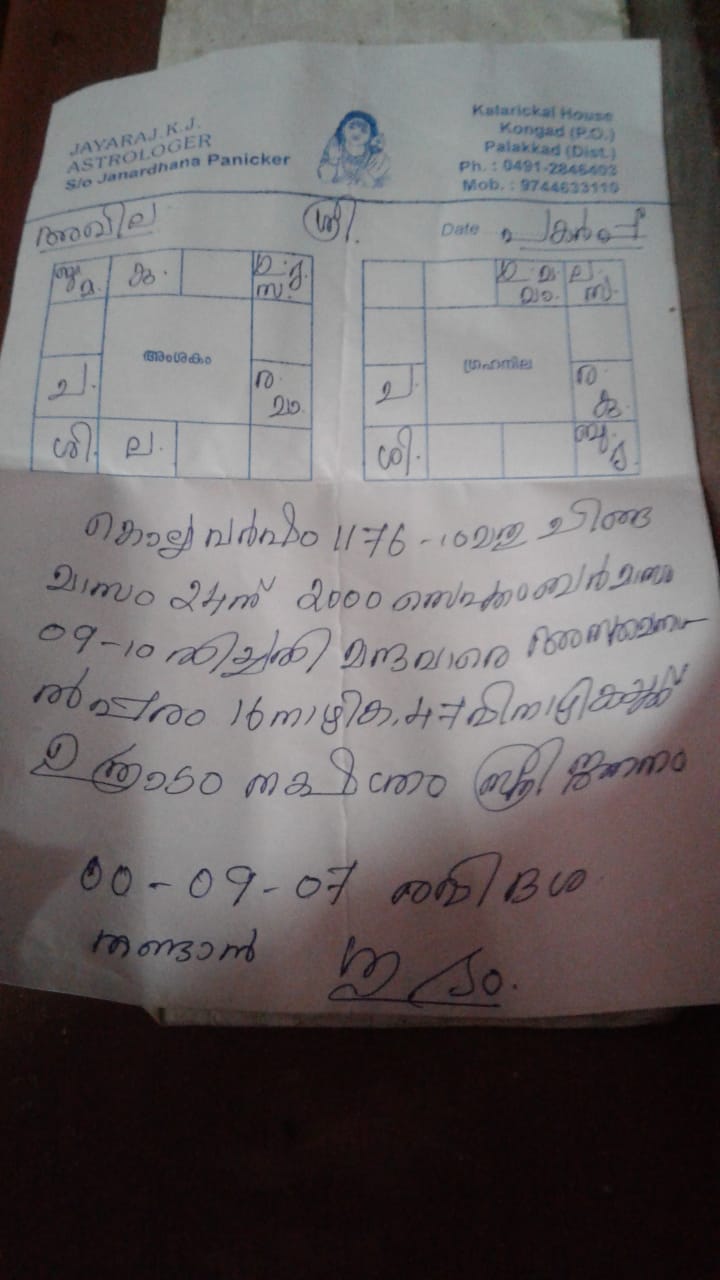 JAYARAJ.K.J.
ASTROLOGER
S/o Janardhana Panicker
Kalarickal House
Kongad (P.O.)
Palakkad (Dist.)
Ph. : 0491-2846403
Mob. : 9744633110
അഖില
ശ്രീ.
Date
പകർപ്പ്
ബു മ. കു. ഗു. ര. സ.
അംശകം
ച.
ര. മാ.
ശി. ല.
ഗു. മ. മാ. ല. സ.
ഗ്രഹനില
ച.
ര. കു.
ശി. ബു
കൊല്ലവർഷം 1176-ാമതു ചിങ്ങ
മാസം 24ന് 2000 സെപ്തംബർമാസം
09-10 തിയ്യതി മന്ദവാരെ അസ്തമന
ൽപരം 16നാഴിക.47വിനാഴികക്ക്
ഉത്രാടം നക്ഷത്രം സ്ത്രീ ജനനം
00-09-07 ദശ
തണ്ടാൻ